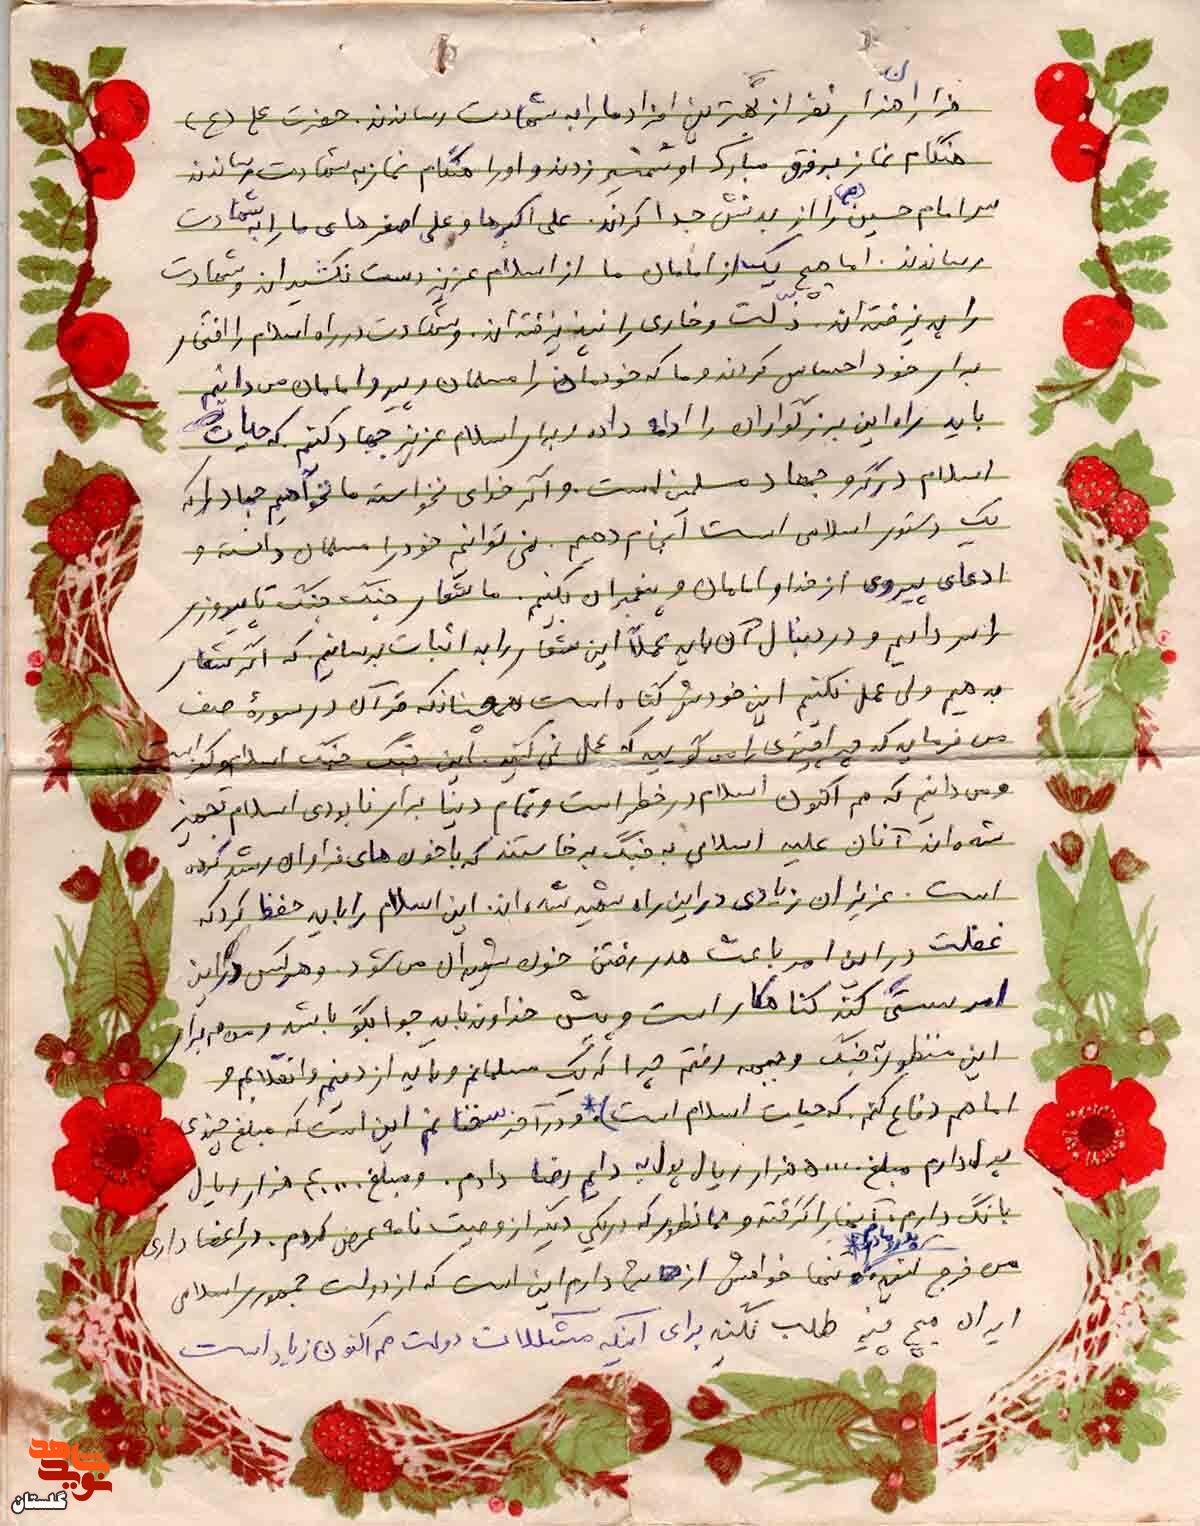 هزار نفر از بهترین افراد ما را به شهادت رساندند. حضرت علی (ع)
هنگام نماز بر فرق مبارک او شمشیر زدند و او را هنگام نماز به شهادت رساندند
سر امام حسین (ع) را از بدنش جدا کردند. علی اکبرها و علی اصغرهای ما را به شهادت
رساندند. اما هیچ یک از امامان ما از اسلام عزیز دست نکشیدند و شهادت
را پذیرفته اند. ذلت و خاری را نپذیرفته اند. و شهادت در راه اسلام را افتخار
برای خود احساس کردند و ما که خودمان را مسلمان و پیرو امامان می دانیم
باید راه این بزرگواران را ادامه داده و برای اسلام عزیز جهاد کنیم. که حیات
اسلام در گرو جهاد مسلمین است. و اگر خدای نخواسته ما نخواهیم جهاد را که
یک دستور اسلامی است انجام دهیم. نمی توانیم خود را مسلمان دانسته و
ادعای پیروی از خدا و امامان و پیغمبران بکنیم. ما شعار جنگ جنگ تا پیروزی
را سر دادیم و در دنبال آن باید عملاً این شعار را به اثبات برسانیم. که اگر شعار
بدهیم ولی عمل نکنیم این خودش گناه است همچنانکه قرآن در سورهٔ صف
می فرماید که چرا چیزی را می گویید که عمل نمی کنید. این جنگ جنگ اسلام و کفر است
و می دانیم که هم اکنون اسلام در خطر است و تمام دنیا برای نابودی اسلام تجهیز
شده اند آنان علیه اسلامی به جنگ برخاستند که با خون های فراوان رشد کرده
است. عزیزان زیادی در این راه شهید شده اند. این اسلام را باید حفظ کرد که
غفلت در این امر باعث هدر رفتن خون شهیدان می شود. و هر کس در این
امر سستی کند گناهکار است و پیش خداوند باید جوابگو باشد و من هم برای
این منظور به جنگ و جبهه رفتم چرا که یک مسلمانم و باید از دینم و انقلابم و
امامم دفاع کنم. که حیات اسلام است). و در آخر سخنانم این است که مبلغ چیزی
پول دارم مبلغ ۵۰۰۰ هزار ریال پول به دایم رضا دادم. و مبلغ هزار ریال
بانک دارم. آنها را گرفته و همانطور که در یکی دیگر از وصیت نامه عرض کردم. در اعضا داری
پدر و مادرم
من خرج کنید. تنها خواهش از شما دارم این است که از دولت جمهوری اسلامی
ایران هیچ چیز طلب نکنید برای اینکه مشکلات دولت هم اکنون زیاد است
نوید شاهد
گلستان